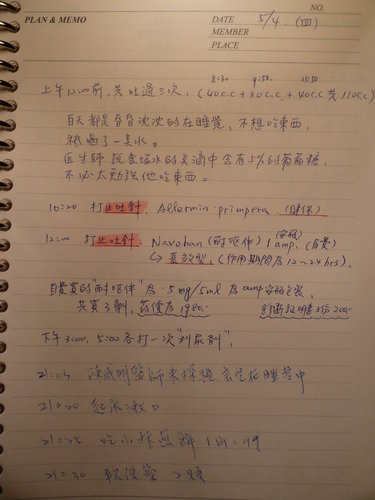 PLAN & MEMO
NO.
DATE 5/4 (四)
MEMBER
PLACE
8:30 9:50 11:50
上午12:00前,共吐過三次,(40c.c+30c.c.+40c.c共110c.c)
白天都是昏昏沈沈的在睡覺,不想吃東西,
稍喝了一點水。
醫生師說食鹽水的點滴中含有5%的葡萄糖,
不必太勉強他吃東西。
10:20 打止吐針,Allermin primpera (健保)
12:00 打止吐針,Navoban (耐嘔伴) 1 amp. (自費)
↳長效型,(作用期間為12~24hrs).
自費買的"耐嘔伴"為5mg/5ml 為amp
共買3劑,藥價為1980.- 診斷證明書 200.-
下午3:00,5:00各打一次"利尿劑".
21:05 醫師來探視,在睡覺中
21:20 漱口
21:25 吃小林煎餅
21:30 軟便藥